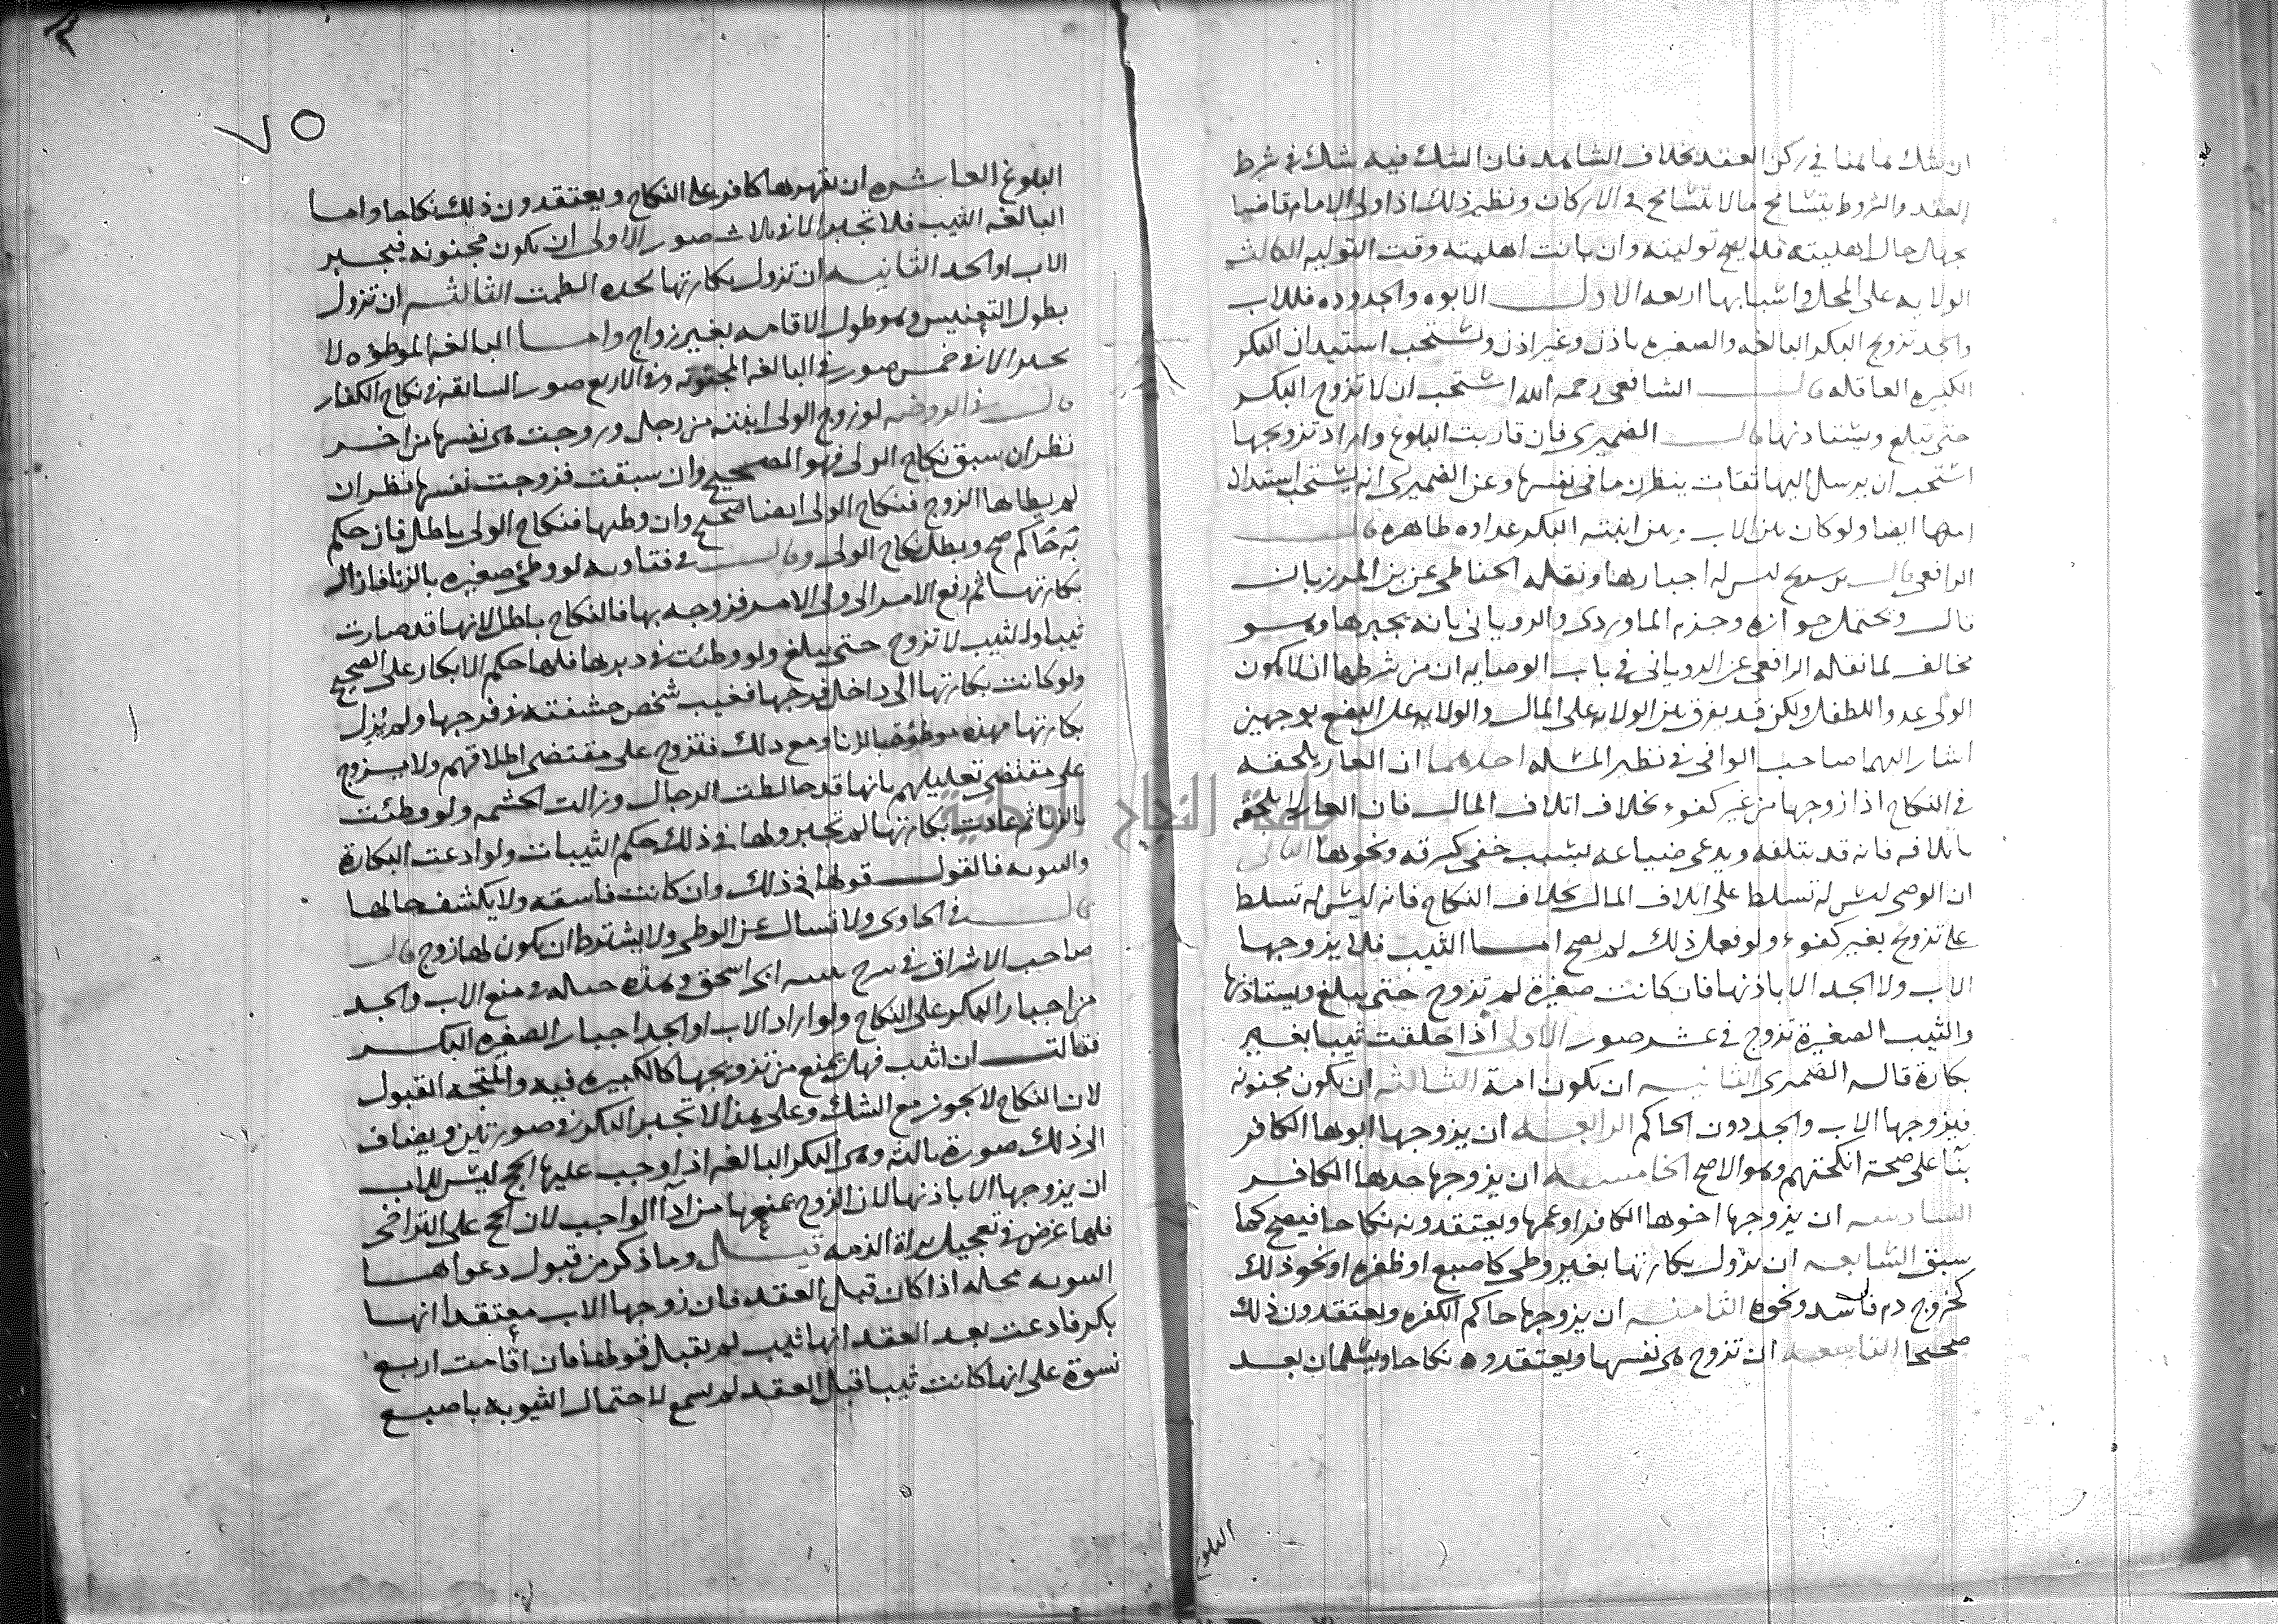 ان شك هاهنا في ركن العقد بخلاف الشاهد فان الشك فيه شك في شرط
العقد والشروط يتسامح فيها مالا يتسامح في الاركان ونظير ذلك اذا ولى الامام قاضيا
يجهل حال اهليته فلا يصح توليته وان بانت اهليته وقت التوليه الثالث
الولايه على المحل واسبابها اربعه الاول الابوه والجدوده فللاب
والجد تزويج البكر البالغه والصغيره باذن وغير اذن ويستحب استيذان البكر
الكبيره العاقله قال الشافعي رحمه الله استحب ان لا تزوج البكر
حتى تبلغ ويستاذنها قال الصيمري فان قاربت البلوغ واراد تزويجها
استحب ان يرسل اليها ثقات ينظرن ما في نفسها وعن الصيمري انه يستحب استيذان
امها ايضا ولو كان بين الاب وبين ابنته البكر عداوه ظاهره قال
الرافعي قال بن سريج ليس له اجبارها ونقله الحناطي عن بن المرزبان
قال ويحتمل جوازه وجزم الماوردي والروياني بانه يجبرها وهو
مخالف لما نقله الرافعي عن الروياني في باب الوصايه ان من شرطها ان لا يكون
الولى عدوا للطفل ولكن قد يفرق بين الولايه على المال والولايه على البضع بوجهين
اشار اليهما صاحب الوافي في نظير المسله احدهما ان العار يلحقه
في النكاح اذا زوجها من غير كفوء بخلاف اتلاف المال فان العار لا يلحقه
باتلافه فانه قد يتلفه ويدعى ضياعه بسبب خفي كسرقه ونحوها الثاني
ان الوصي ليس له تسلط على اتلاف المال بخلاف النكاح فانه ليس له تسلط
على تزويج بغير كفوء ولو فعل ذلك لم يصح اما الثيب فلا يزوجها
الاب ولا الجد الا باذنها فان كانت صغيرة لم تزوج حتى تبلغ ويستاذنها
والثيب الصغيرة تزوج في عشر صور الاولى اذا خلقت ثيبا بغير
بكارة قاله الصيمري الثانيه ان يكون امة الثالثه ان يكون مجنونه
فيزوجها الاب والجد دون الحاكم الرابعه ان يزوجها ابوها الكافر
بنآ على صحة انكحتهم وهو الاصح الخامسه ان يزوجها جدها الكافر
السادسه ان يزوجها اخوها الكافر او عمها ويعتقدونه نكاحا فيصح كما
سبق السابعه ان تزول بكارتها بغير وطى كاصبع او ظفره او نحو ذلك
كخروج دم فاسد ونحوه الثامنه ان يزوجها حاكم الكفره ويعتقدون ذلك
صحيحا التاسعه ان تزوج هى نفسها ويعتقدوه نكاحا ويسلمان بعد
البلوغ
٧٥
البلوغ العاشره ان يقهرها كافر على النكاح ويعتقدون ذلك نكاحا واما
البالغه الثيب فلا تجبر الا في ثلاث صور الاولى ان يكون مجنونه فيجبر
الاب او الجد الثانيه ان تزول بكارتها بحده الطمث الثالثه ان تزول
بطول التعنيس وهو طول الاقامه بغير زواج واما البالغه الموطؤه لا
تجبر الا في خمس صور في البالغه المجنونه وفي الاربع صور السابقه في نكاح الكفار
قال في الروضه لو زوج الولى ابنته من رجل وزوجت هى نفسها من اخر
نظر ان سبق نكاح الولى فهو الصحيح وان سبقت فزوجت نفسها نظر ان
لم يطاها الزوج فنكاح الولى ايضا صحيح وان وطيها فنكاح الولى باطل فان حكم
به حاكم صح وبطل نكاح الولى وقال في فتاويه لو وطئ صغيره بالزنا فازال
بكارتها ثم رفع الامر الى ولى الامر فزوجه بها فالنكاح باطل لانها قد صارت
ثيبا والثيب لا تزوج حتى تبلغ ولو وطئت في دبرها فلها حكم الابكار على الصحيح
ولو كانت بكارتها الى داخل فرجها فغيب شخص حشفته في فرجها ولم يزل
بكارتها فهذه موطؤة بالزنا ومع ذلك فتزوج على مقتضى اطلاقهم ولا يزوج
على مقتضى تعليلهم بانها قد خالطت الرجال وزالت الحشمه ولو وطئت
بالزنا ثم عادت بكارتها لم تجبر ولها في ذلك حكم الثيبات ولو ادعت البكارة
والثيوبه فالقول قولها في ذلك وان كانت فاسقه ولا يكشف حالها
قال في الحاوى ولا تسال عن الوطى ولا يشترط ان يكون لها زوج قال
صاحب الاشراق في شرح ابى اسحق وهذه حيله في منع الاب والجد
من اجبار البكر على النكاح ولو اراد الاب او الجد اجبار الصغيره البكر
فقالت ان اثيب فهل يمنع من تزويجها كالكبيره فيه والمتجه القبول
لان النكاح لا يجوز مع الشك وعلى هذا لا تجبر البكر في صورتين ويضاف
الى ذلك صورة ثالثه وهى البكر البالغه اذا وجب عليها الحج ليس للاب
ان يزوجها الا باذنها لان الزوج يمنعها من ادآ الواجب لان الحج على التراخى
فلها غرض في تعجيل براة الذمه قيل وما ذكر من قبول دعواها
الثيوبه محله اذا كان قبل العقد فان زوجها الاب معتقدا انها
بكر فادعت بعد العقد انها ثيب لم يقبل قولها فان اقامت اربع
نسوة على انها كانت ثيبا قبل العقد لم يسمع لاحتمال الثيوبه باصبع
جامعة النجاح الوطنية